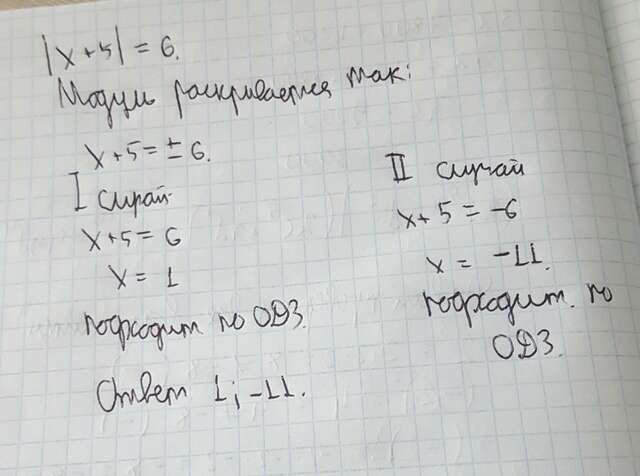 |x+5| = 6.
Модуль раскрывается так:
x+5 = ± 6.
I случай
x+5 = 6
x = 1
подходит по ОДЗ.
II случай
x+5 = -6
x = -11.
подходит. по
ОДЗ.
Ответ 1; -11.